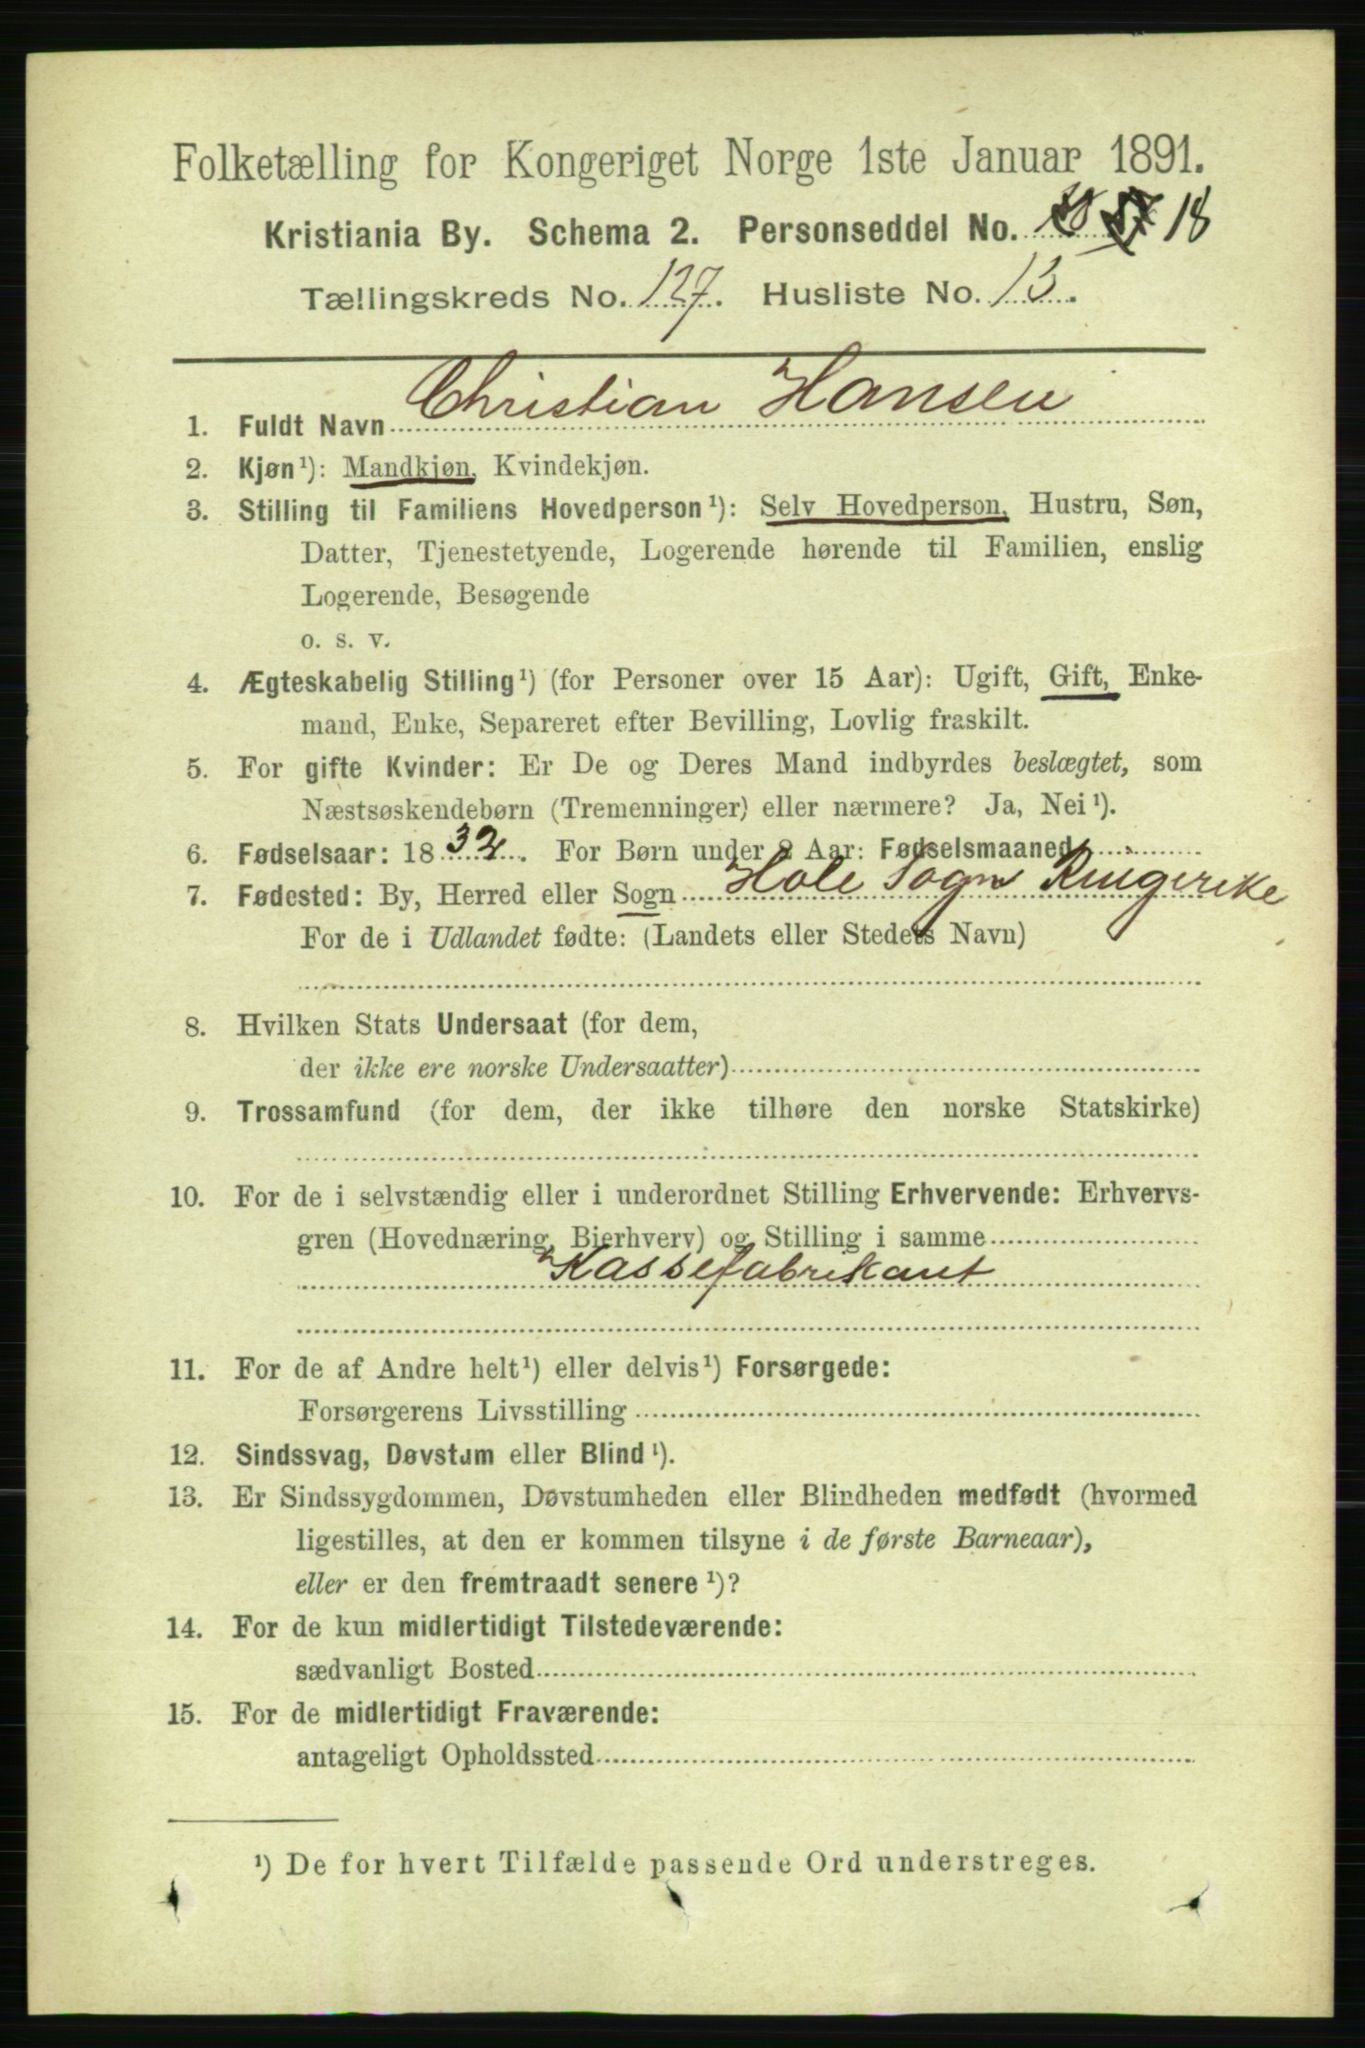 Folketælling for Kongeriget Norge 1ste Januar 1891.
Kristiania By. Schema 2. Personseddel No. 18
Tællingskreds No. 127. Husliste No. 13.
1. Fuldt Navn Christian Hansen
2. Kjøn¹): Mandkjøn, Kvindekjøn.
3. Stilling til Familiens Hovedperson¹): Selv Hovedperson, Hustru, Søn,
Datter, Tjenestetyende, Logerende hørende til Familien, enslig
Logerende, Besøgende
o. s. v.
4. Ægteskabelig Stilling¹) (for Personer over 15 Aar): Ugift, Gift, Enke-
mand, Enke, Separeret efter Bevilling, Lovlig fraskilt.
5. For gifte Kvinder: Er De og Deres Mand indbyrdes beslægtet, som
Næstsøskendebørn (Tremenninger) eller nærmere? Ja, Nei¹).
6. Fødselsaar: 1832. For Børn under 2 Aar: Fødselsmaaned
7. Fødested: By, Herred eller Sogn Hole Sogn Ringerike
For de i Udlandet fødte: (Landets eller Stedets Navn)
8. Hvilken Stats Undersaat (for dem,
der ikke ere norske Undersaatter)
9. Trossamfund (for dem, der ikke tilhøre den norske Statskirke)
10. For de i selvstændig eller i underordnet Stilling Erhvervende: Erhvervs-
gren (Hovednæring, Bierhverv) og Stilling i samme
Kassefabrikant
11. For de af Andre helt¹) eller delvis¹) Forsørgede:
Forsørgerens Livsstilling
12. Sindssvag, Døvstum eller Blind¹).
13. Er Sindssygdommen, Døvstumheden eller Blindheden medfødt (hvormed
ligestilles, at den er kommen tilsyne i de første Barneaar),
eller er den fremtraadt senere¹)?
14. For de kun midlertidigt Tilstedeværende:
sædvanligt Bosted
15. For de midlertidigt Fraværende:
antageligt Opholdssted
¹) De for hvert Tilfælde passende Ord understreges.